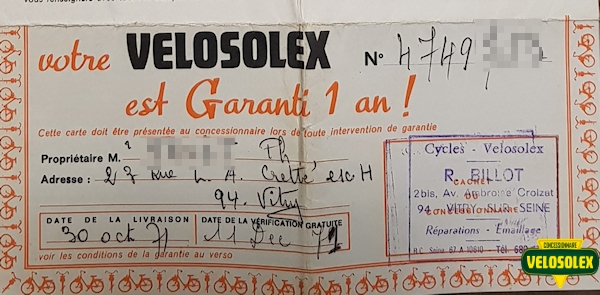 votre VELOSOLEX No 4749
est Garanti 1 an !
Cette carte doit être présentée au concessionnaire lors de toute intervention de garantie
Propriétaire M. Ph
Adresse : 27 Rue L. A. Cretté esc H
94. Vitry
DATE DE LA LIVRAISON
30 oct 71
DATE DE LA VÉRIFICATION GRATUITE
11 Dec 71
voir les conditions de la garantie au verso
Cycles - Velosolex
R. BILLOT
CACHET
2bis, Av. Ambroise Croizat
DU
94 - VITRY-SUR-SEINE
CONCESSIONNAIRE
Réparations - Émaillage
R.C. Seine 67 A 10610 - Tél. 680
CONCESSIONNAIRE
VELOSOLEX